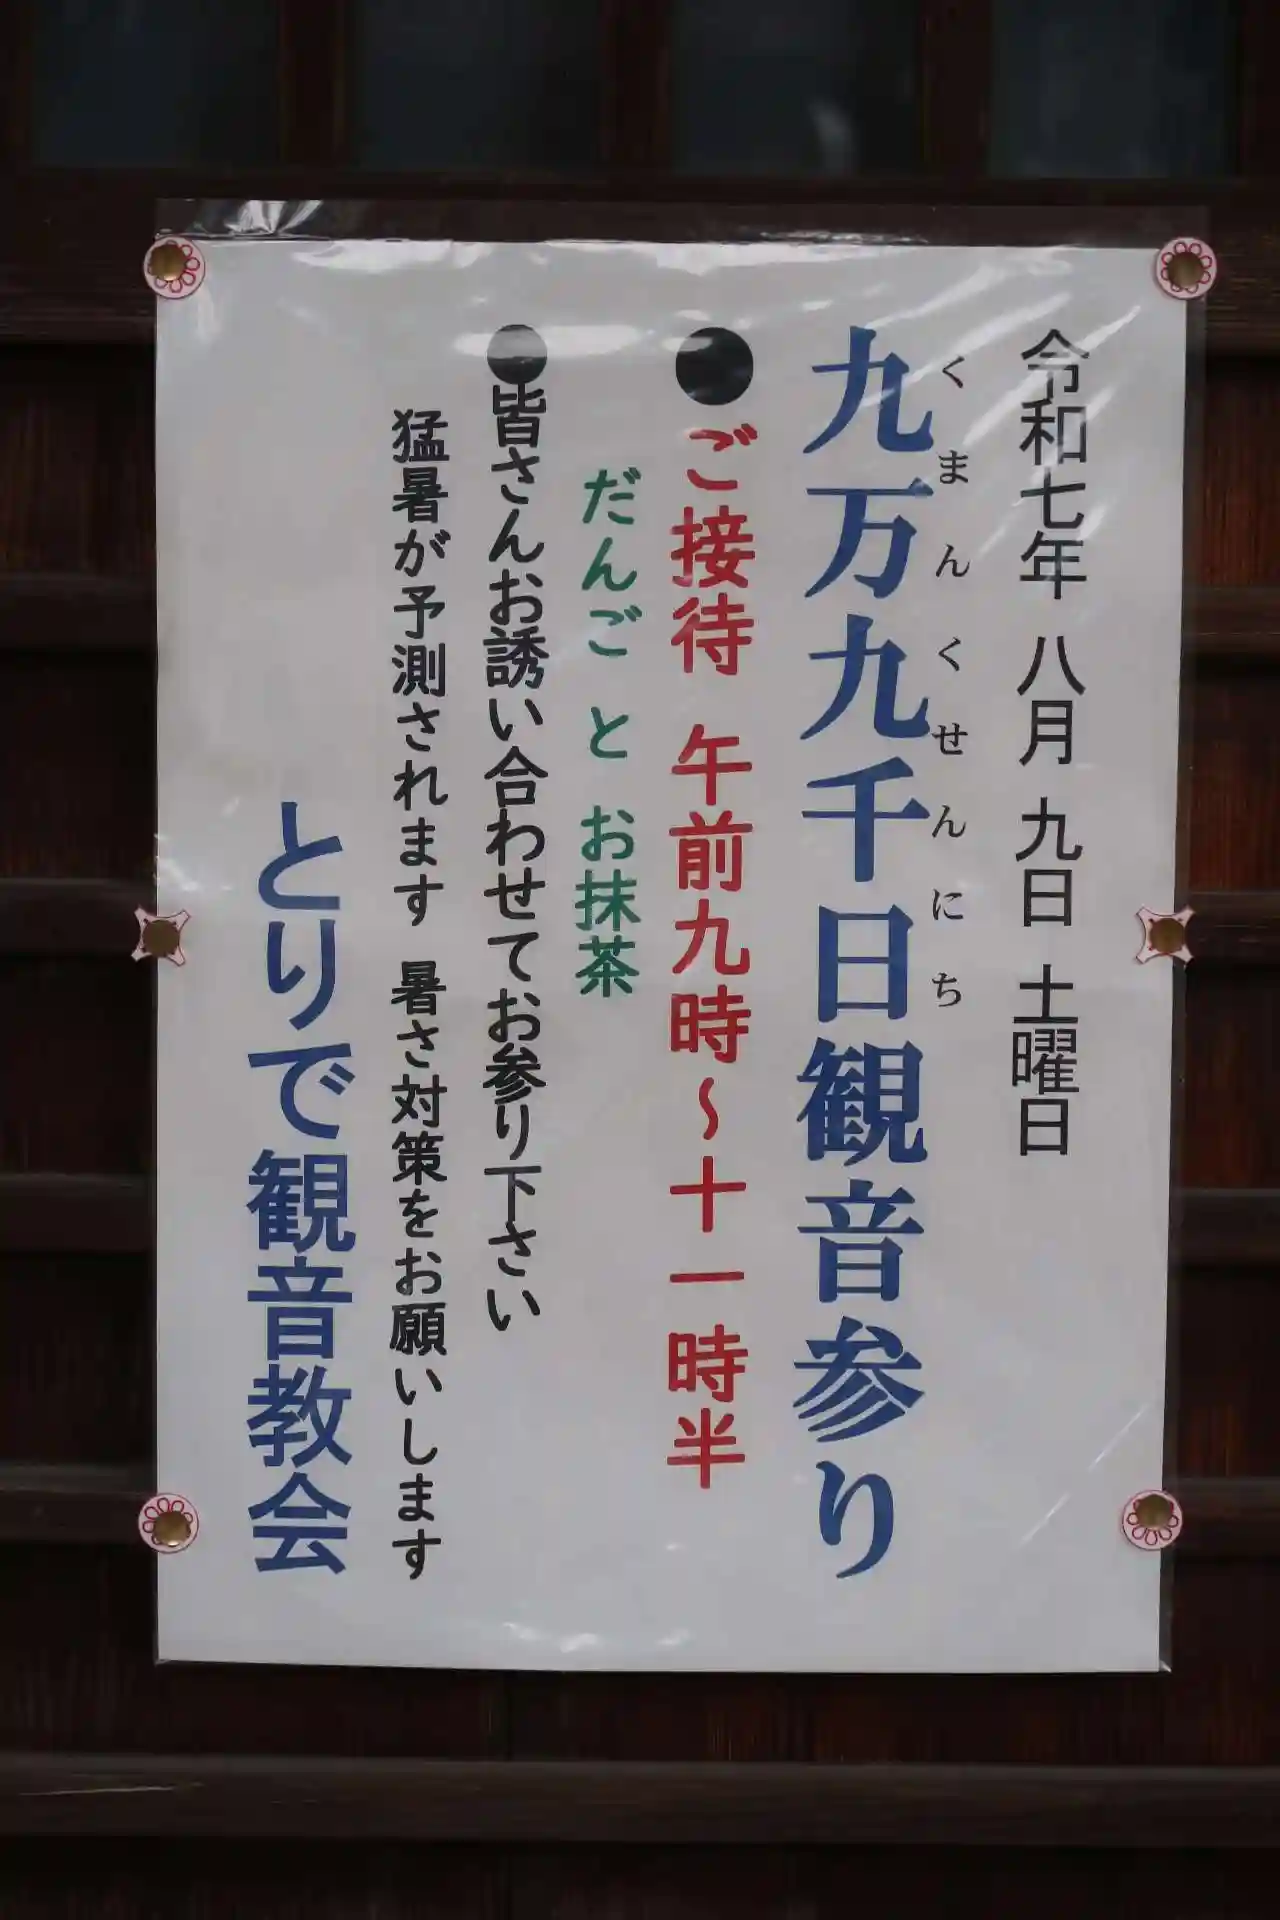 令和七年 八月 九日 土曜日
九万九千日観音参り
くまんくせんにち
●ご接待 午前九時～十一時半
だんご と お抹茶
●皆さんお誘い合わせてお参り下さい
猛暑が予測されます 暑さ対策をお願いします
とりで観音教会